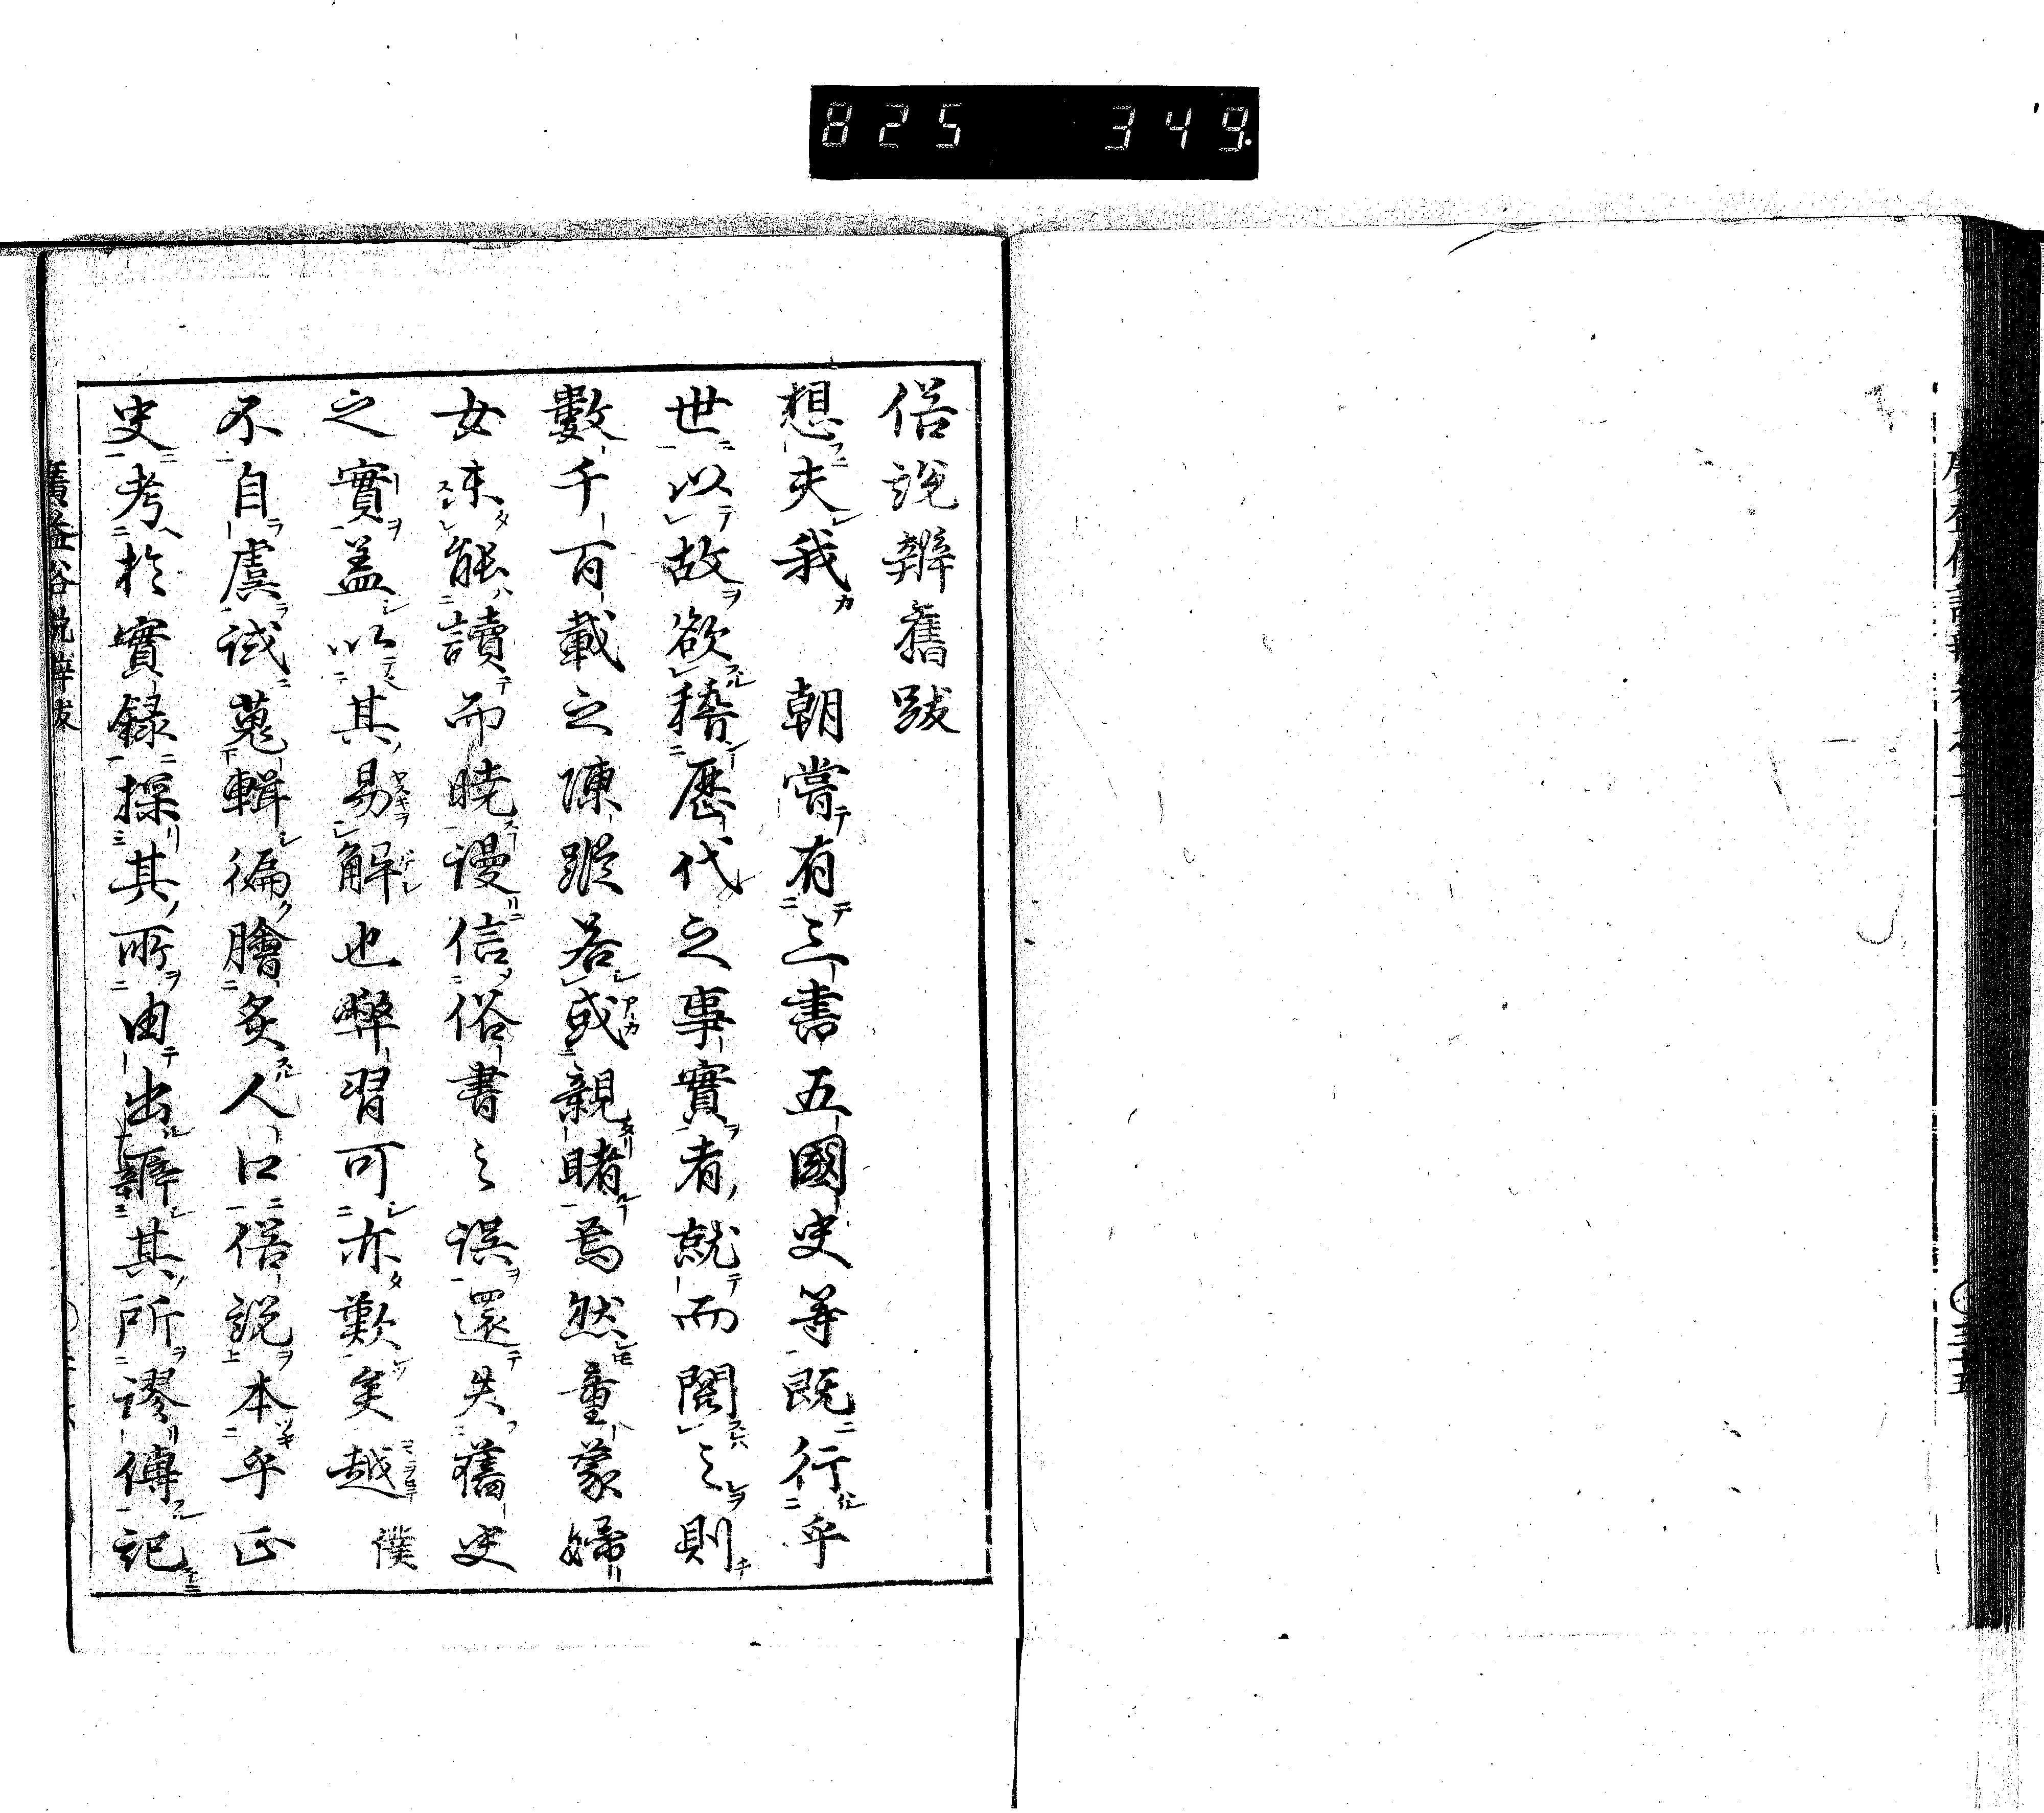 825 349
俗説辨舊跋
想夫我 朝嘗有三書五國史等既行乎
世以故欲稽歷代之事實者就而閱之則
數千百載之陳蹤若或親睹焉然童蒙婦
女未能讀而曉謾信俗書之誤還失舊史
之實蓋以其易解也弊習可亦歎矣越僕
不自虞試蒐輯徧膾炙人口俗説本乎正
史考於實録操其所由出辨其所謬傳記
廣益俗説辨跋